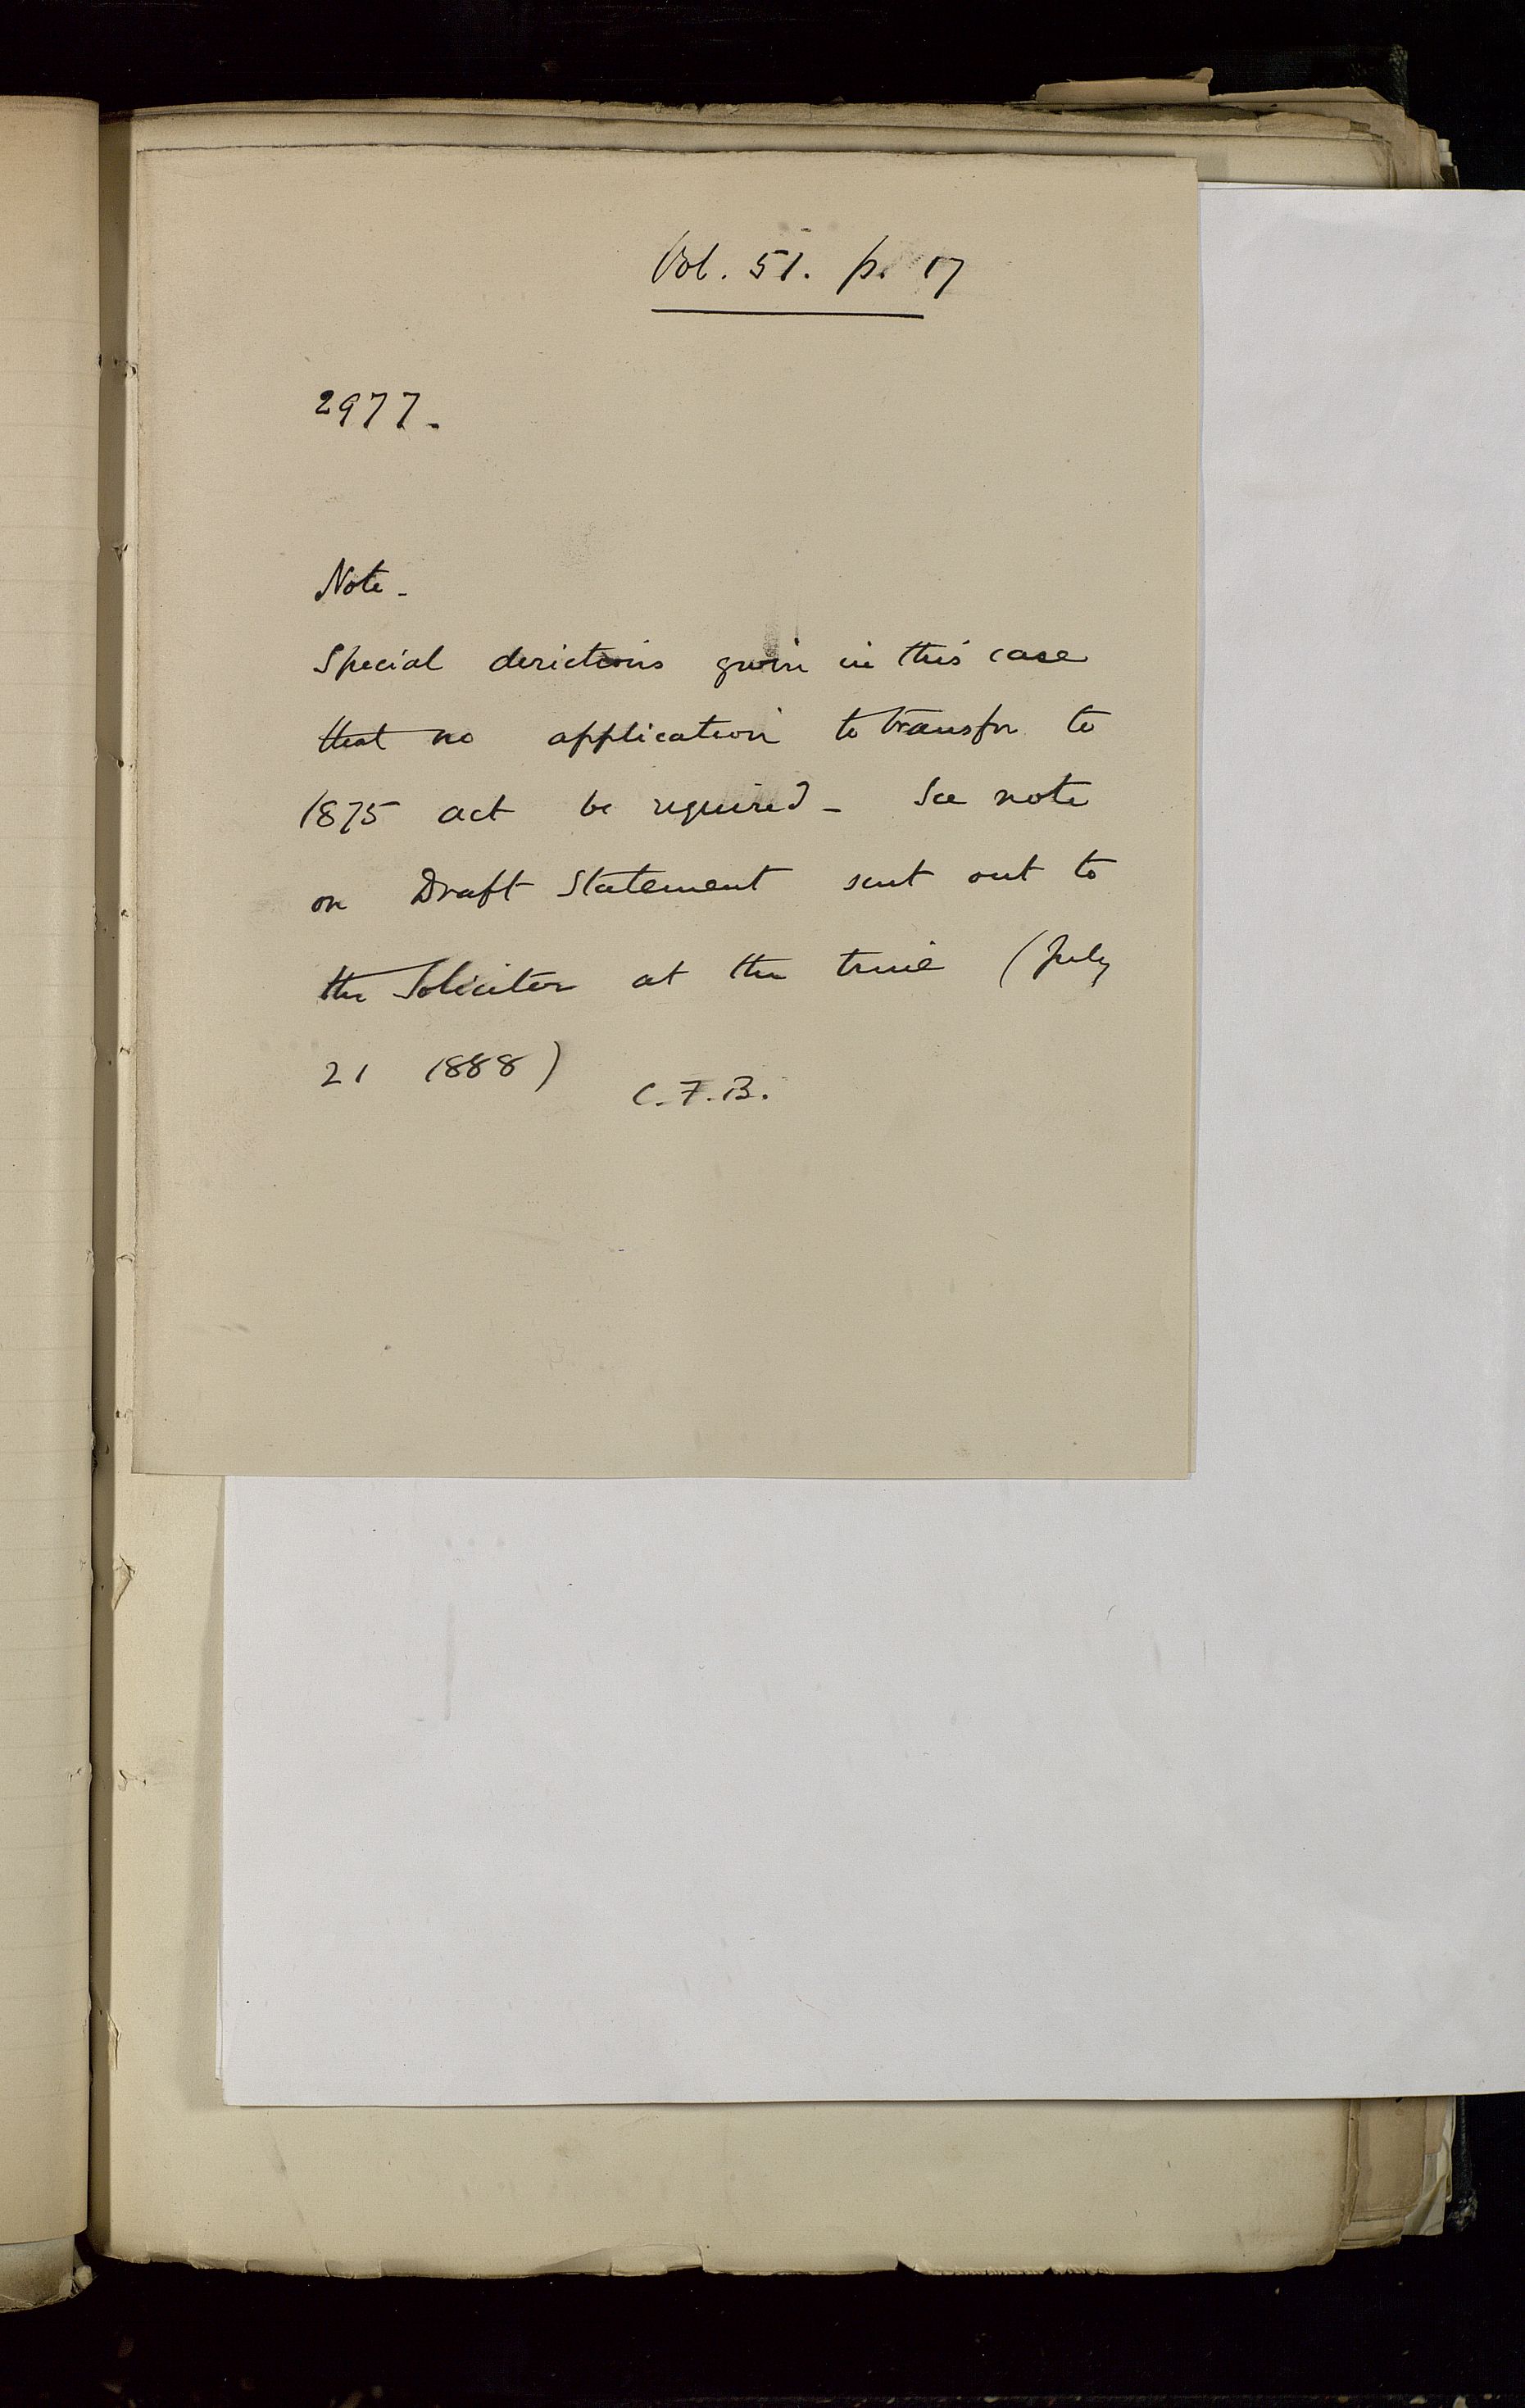 Vol. 51. p. 17
2977.
Note.
Special directions given in this case
that no application to transfer to
1875 act be required - See note
on Draft Statement sent out to
the Solicitor at the time (July
21 1888)
C.F.B.